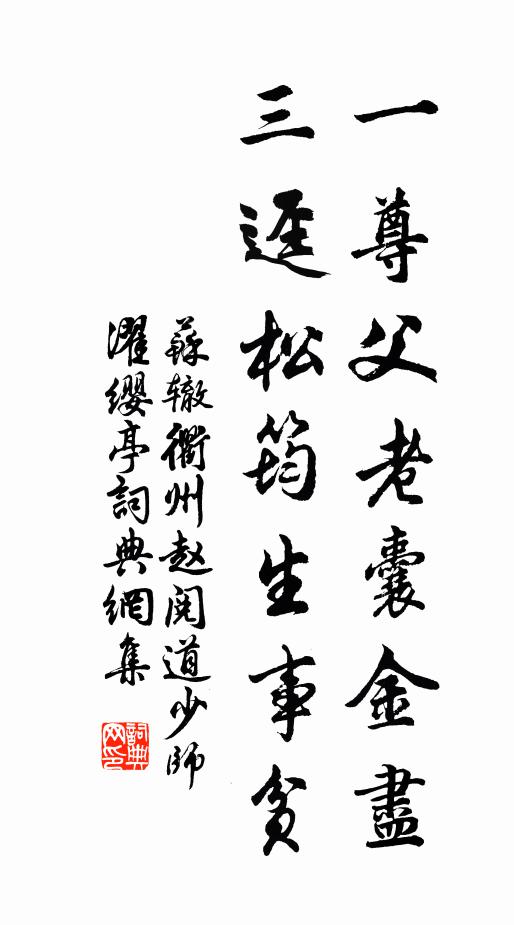 一尊父老囊金盡
三逕松筠生事貧
蘇辙衢州赵阅道少師
濯缨亭詞典網集
詞典网印